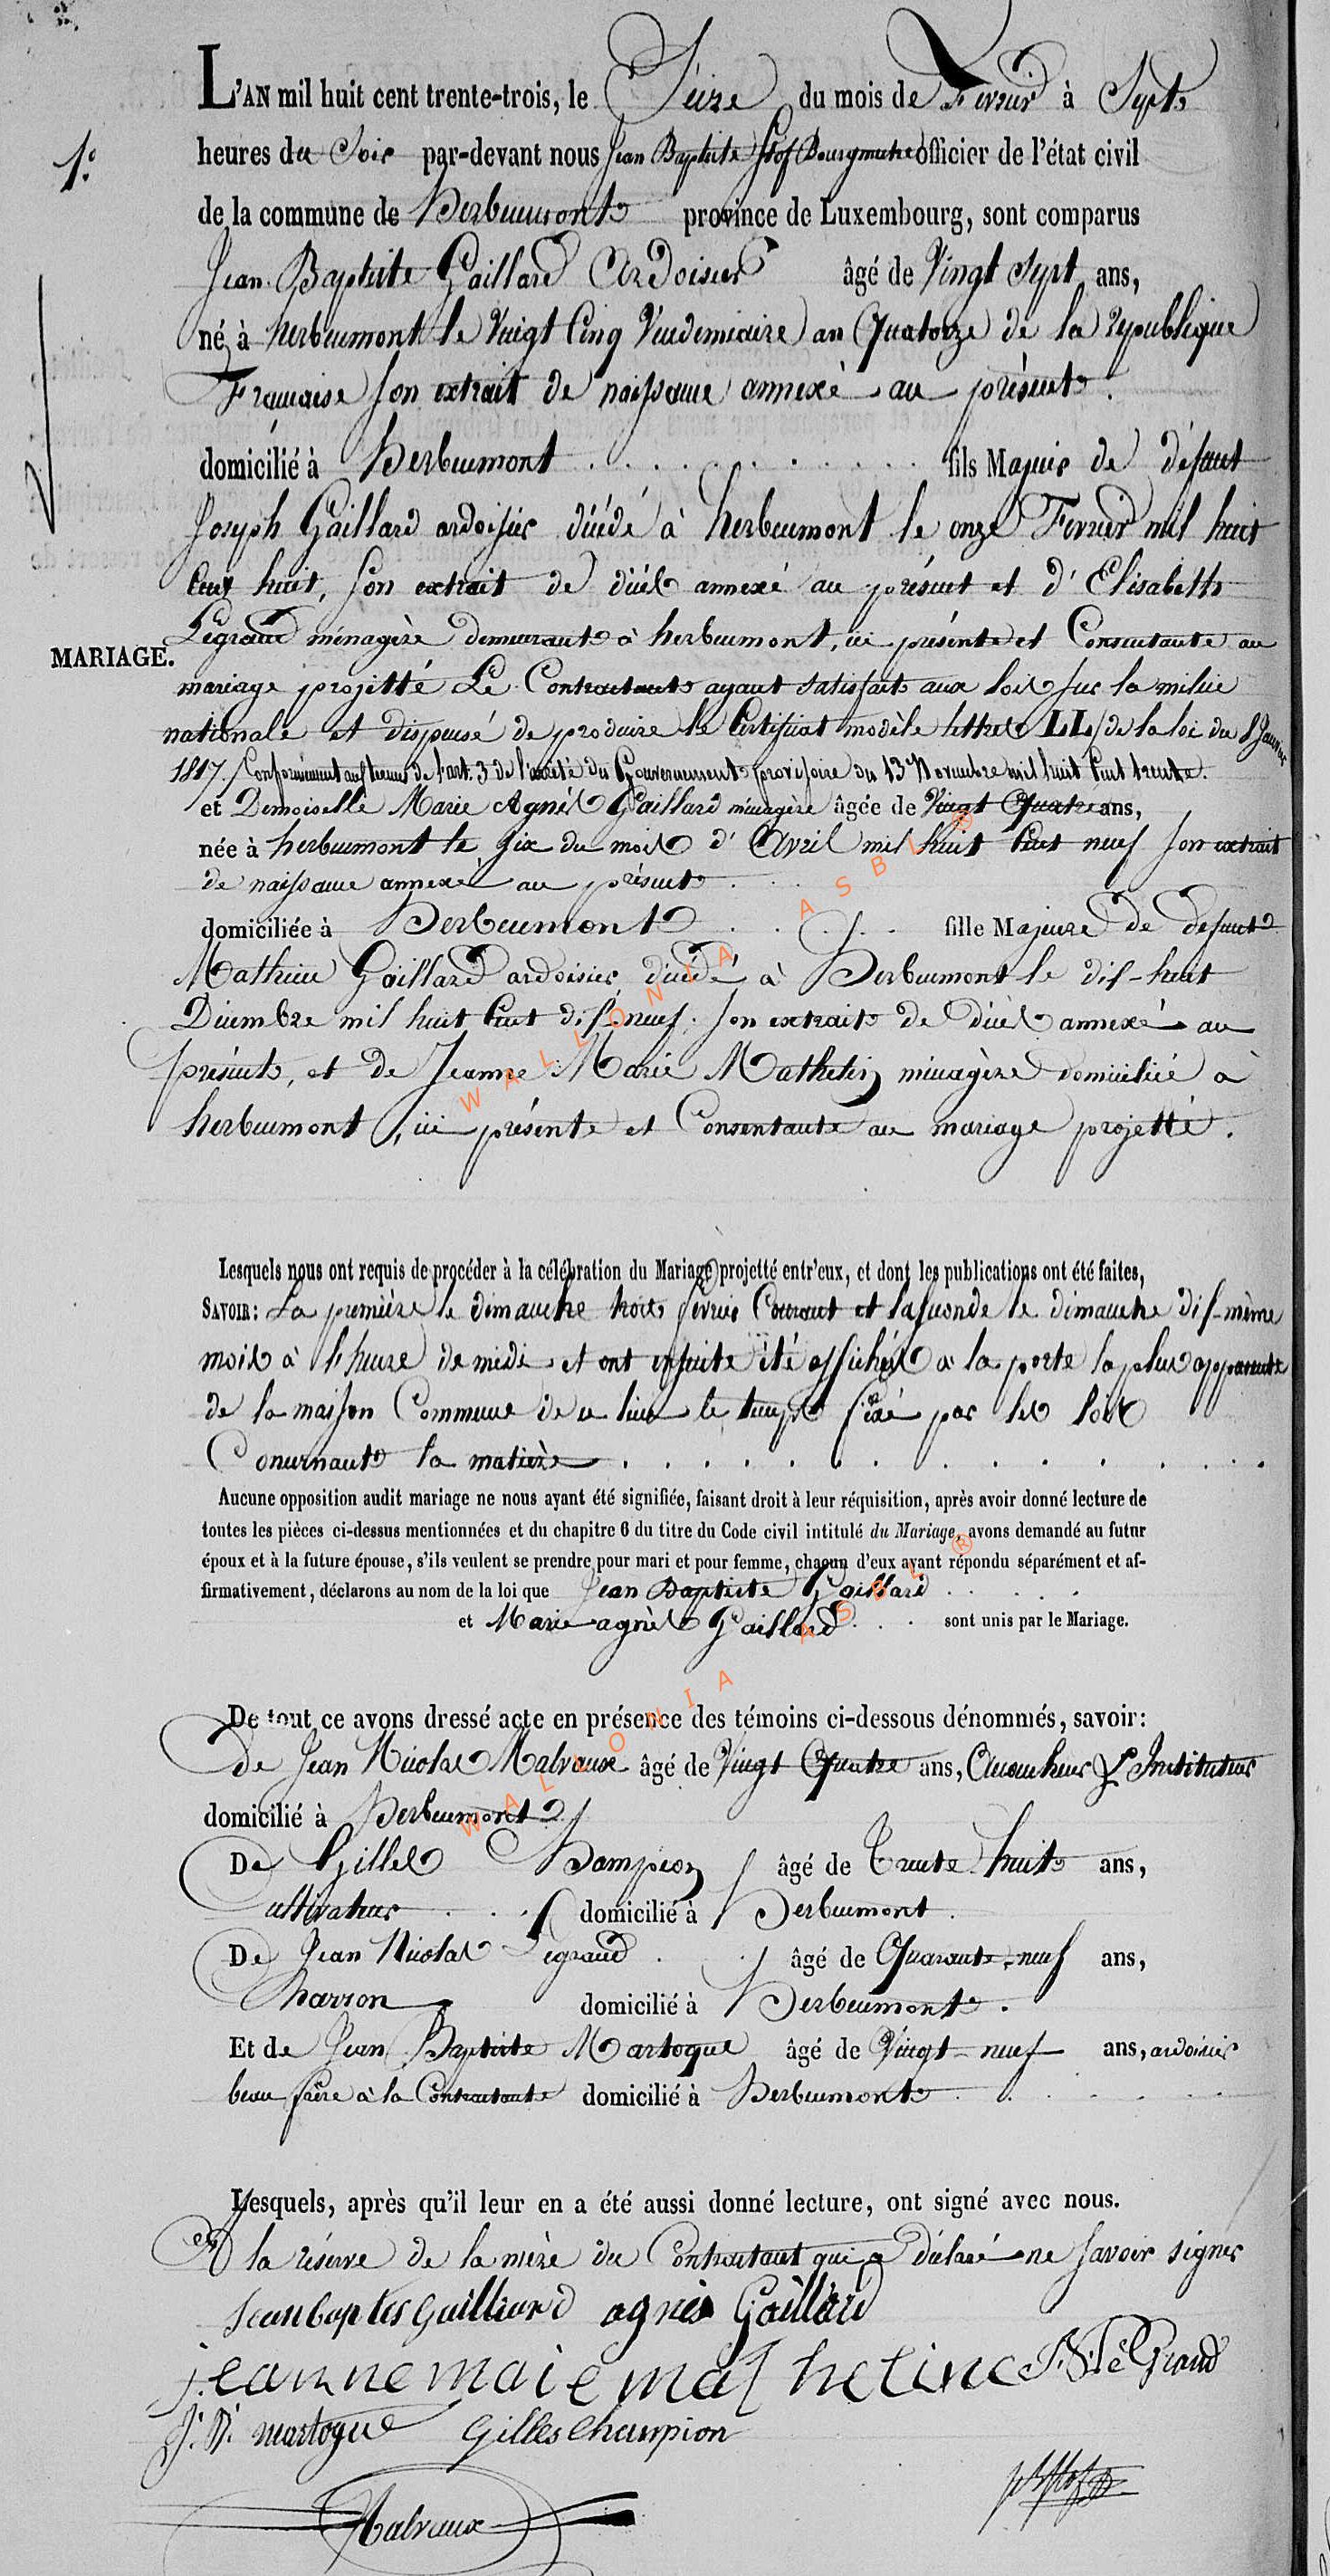 L'AN mil huit cent trente-trois, le Seize du mois de Fevrier à Sept
heures du Soir par-devant nous Jean Baptiste Stof Bourgmestre officier de l'état civil
1°.
de la commune de Herbeumont province de Luxembourg, sont comparus
Jean Baptiste Gaillard Ardoisier âgé de Vingt Sept ans,
né à herbeumont le Vingt Cinq Vendemiaire an Quatorze de la republique
Francaise son extrait de naissance annexé au présent.
domicilié à Herbeumont fils Majeur de défunt
Joseph Gaillard ardoisier décédé à herbeumont le onze Fevrier mil huit
Cent huit, son extrait de décès annexé au présent et d'Elisabeth
Legrand ménagère demeurante à herbeumont, ici présente et Consentante au
MARIAGE.
mariage projetté Le Contractant ayant satisfait aux lois sur la milice
nationale et dispensé de produire le Certificat modèle lettres LL de la loi du 8 Janvier
1817. Conformément aux termes de l'art. 3 de l'arrêté du Gouvernement provisoire du 13 Novembre mil huit Cent trente.
et Demoiselle Marie Agnès Gaillard ménagère âgée de Vingt Quatre ans,
née à herbeumont le Six du mois d'Avril mil huit Cent neuf son extrait
de naissance annexé au présent
domiciliée à Herbeumont fille Majeure de defunt
Mathieu Gaillard ardoisier, décédé à Herbeumont le dis-huit
Decembre mil huit Cent dis-neuf. son extrait de décès annexé au
présent, et de Jeanne Marie Mathelin ménagère domiciliée à
herbeumont, ici présente et Consentante au mariage projetté.
Lesquels nous ont requis de procéder à la célébration du Mariage projetté entr'eux, et dont les publications ont été faites,
SAVOIR: La première le dimanche trois fevrier Courant et la seconde le dimanche dis-même
mois à l'heure de midi et ont ensuite été affichés à la porte la plus apparente
de la maison Commune de ce lieu le temps fixé par les lois
Concernant la matière
Aucune opposition audit mariage ne nous ayant été signifiée, faisant droit à leur réquisition, après avoir donné lecture de
toutes les pièces ci-dessus mentionnées et du chapitre 6 du titre du Code civil intitulé du Mariage, avons demandé au futur
époux et à la future épouse, s'ils veulent se prendre pour mari et pour femme, chacun d'eux ayant répondu séparément et af-
firmativement, déclarons au nom de la loi que Jean Baptiste Gaillard
et Marie agnès Gaillard sont unis par le Mariage.
De tout ce avons dressé acte en présence des témoins ci-dessous dénommés, savoir:
de Jean Nicolas Malvaux âgé de Vingt Quatre ans, Accoucheur & Instituteur
domicilié à Herbeumont
De Gilles Champion âgé de Trente huit ans,
Cultivateur domicilié à Herbeumont.
De Jean Nicolas Legrand âgé de Quarante-neuf ans,
Charron domicilié à Herbeumont.
Et de Jean Baptiste Martogue âgé de Vingt-neuf ans, ardoisier
beau frère à la Contractante domicilié à Herbeumont
Lesquels, après qu'il leur en a été aussi donné lecture, ont signé avec nous.
A la réserve de la mère du Contractant qui a déclaré ne savoir signer
Jean baptes Gailliard agnès Gaillard
jeanne maie matheline J.N. Le Grand
J. B. martogue Gilles Champion
Malvaux
WALLONIA ASBL ®
WALLONIA ASBL ®